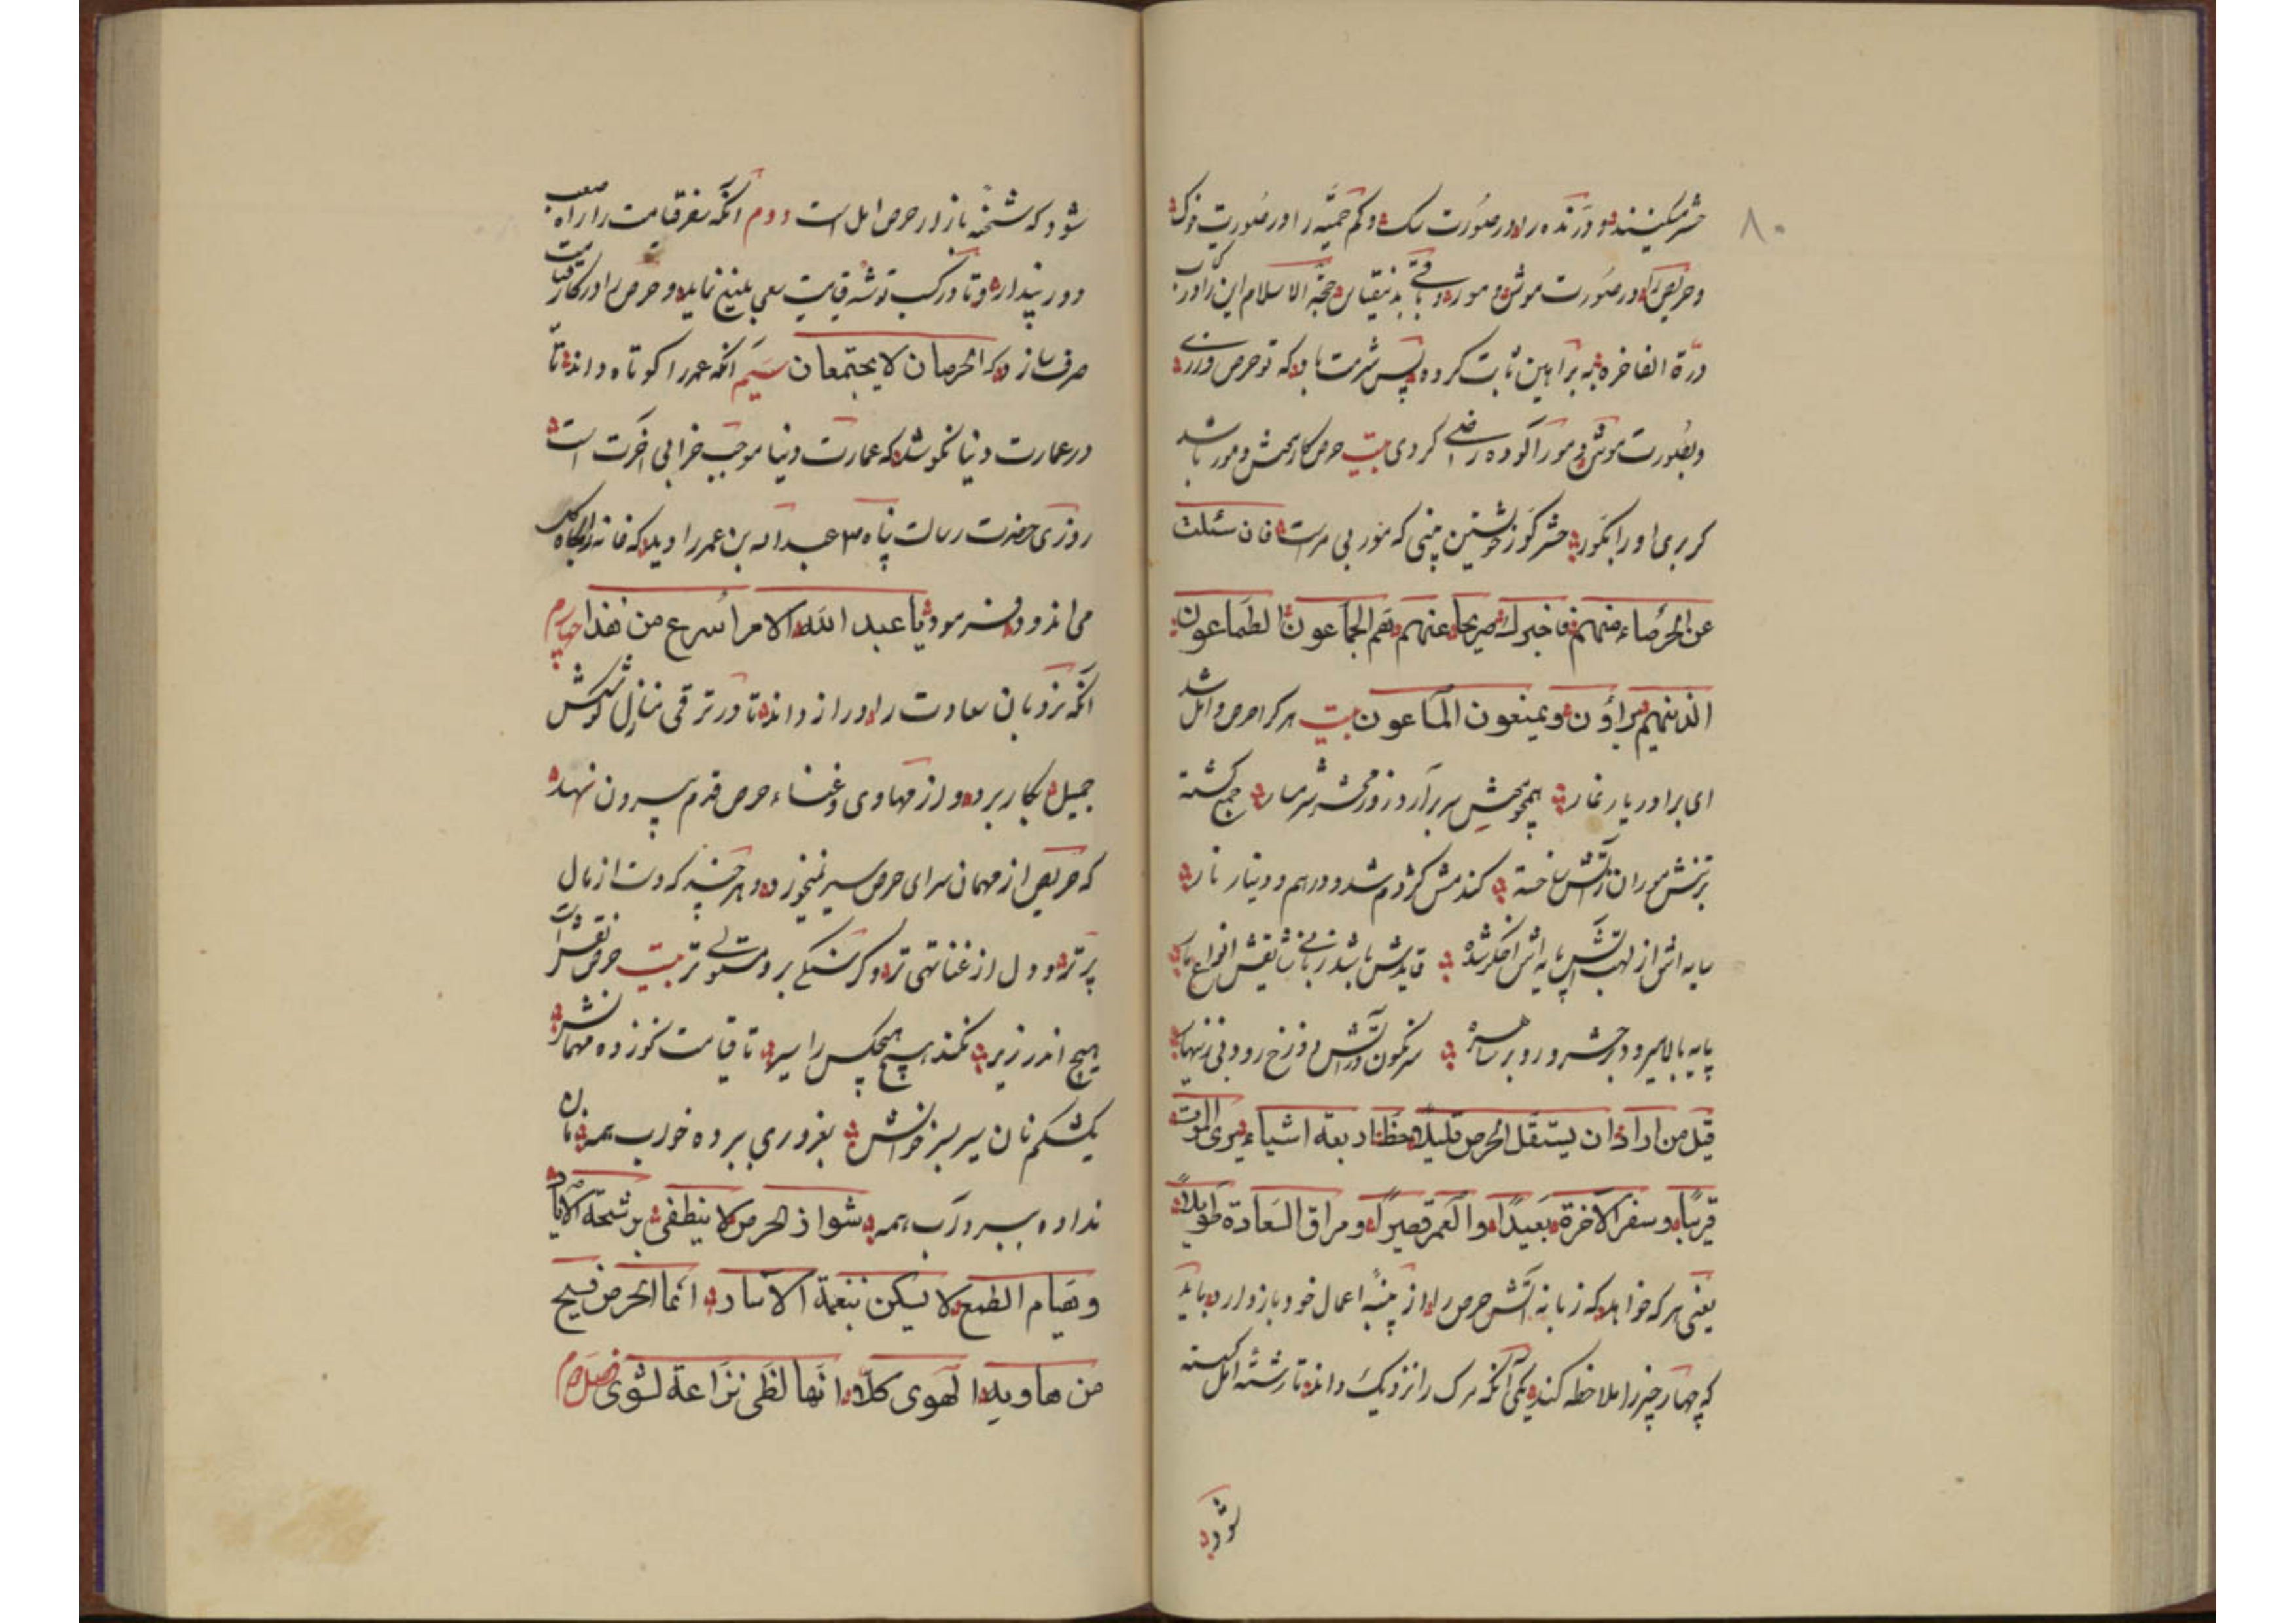 ۸۰
حشر میکنند و درنده را در صورت سک و کم حمیّه را در صورت خوک
و حریص را در صورت موش و مور و باقی بدنیقیاس حجّة الاسلام این را در کتاب
درّة الفاخره به براهین ثابت کرده پس شرمت باد که تو حرص ورزی
و بصورت موش و مور آکوده راضی کردی بیت حرص کار محش و مور باشد
کر بری او را بکور حشر کور خویشتن بینی که مور بی مر است فان سئلت
عن الحرصاء منهم فاخبرك صریحا عنهم هم الجمّاعون الطمّاعون
الذینهم یراؤن و یمنعون الماعون بیت هر کرا حرص و امل شد
ای برادر یار غار همچو محش سر برآرد روز محشر شرمسار جمع کشته
بر تنش موران ز آتش ساخته کندمش کژدم شد و درهم و دینار نار
سایه اش از لهب آتش پایه اش اخکر شده قایدش باشد زبانی نقش انواع
پایه بالا میرود حشر و رو بر نکون در آتش دوزخ رود بی زینهار
قیل من اراد ان یستقل الحرص قلیلا حظا اربعة اشیاء یری الموت
قریبًا و سفر الآخرة بعیدًا والعمر قصیرًا و مراق السّعادة طویلًا
یعنی هر که خواهد که زبانه آتش حرص را از پنبهٔ اعمال خود باز دارد باید
که چهار چیز را ملاحظه کند یکی آنکه مرک را نزدیک داند تا رشتهٔ امل کسسته
شود
شود که شخنه بازار حرص امل است دوم آنکه سفر قیامت را راه صعب
و دور پندارد و تا در کسب توشه قیامت سعی بلیغ نماید و حرص را در کار قیامت
صرف سازد که الحرصان لا یجتمعان سیم آنکه عمر را کوتاه داند تا
در عمارت دنیا نکوشد که عمارت دنیا موجب خرابی آخرت است
روزی حضرت رسالت پناه ص عبد اله بن عمر را دید که خانه را بکاه کل
می اندود فرمود یا عبد الله الامر اسرع من هذا چهارم
آنکه نردبان سعادت را دراز داند تا در ترقی منازلش کوشش
جمیل بکار برد و از مهاوی و غنساء حرص قدم بیرون نهد
که حریص از مهمان سرای حرص سیر نیخیزد و هر چند که دست از مال
پر تر و دل از غنا تهی تر و کرسنکی برو مستولی تر بیت حرص نقشی است
هیچ اندر زیر نکند هیچ هیچکس را سیر تا قیامت نخورده مهمانش
یکشکم نان سیر بر خوانش بغروری ببرده خواب همه نان
نداده ببرد آب همه شواذ الحرص لا ینطفی برشحة الآباد
و هیام الطمع لا یسکن بنغمة الآساد انما الحرص فسیح
من هاویه الهوی کلّا انّها لظی نزّاعة لشوی فصل دوم